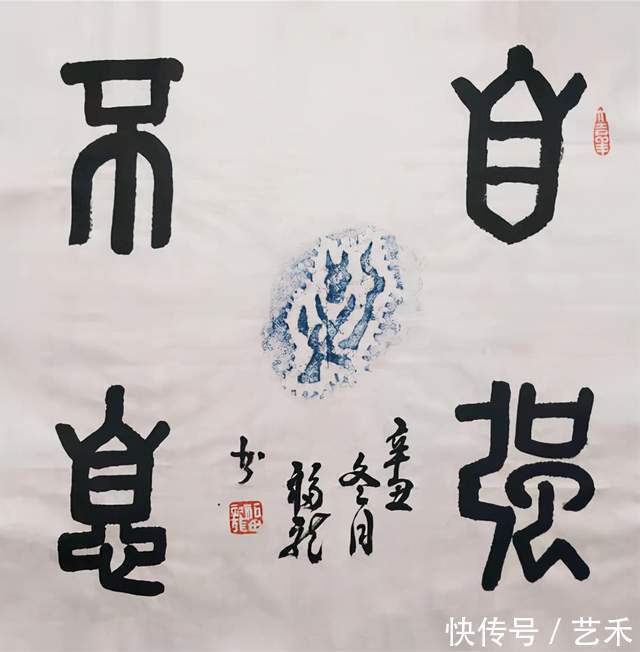 自强
不息
辛丑
冬月
福龙
书
快传号 / 艺禾